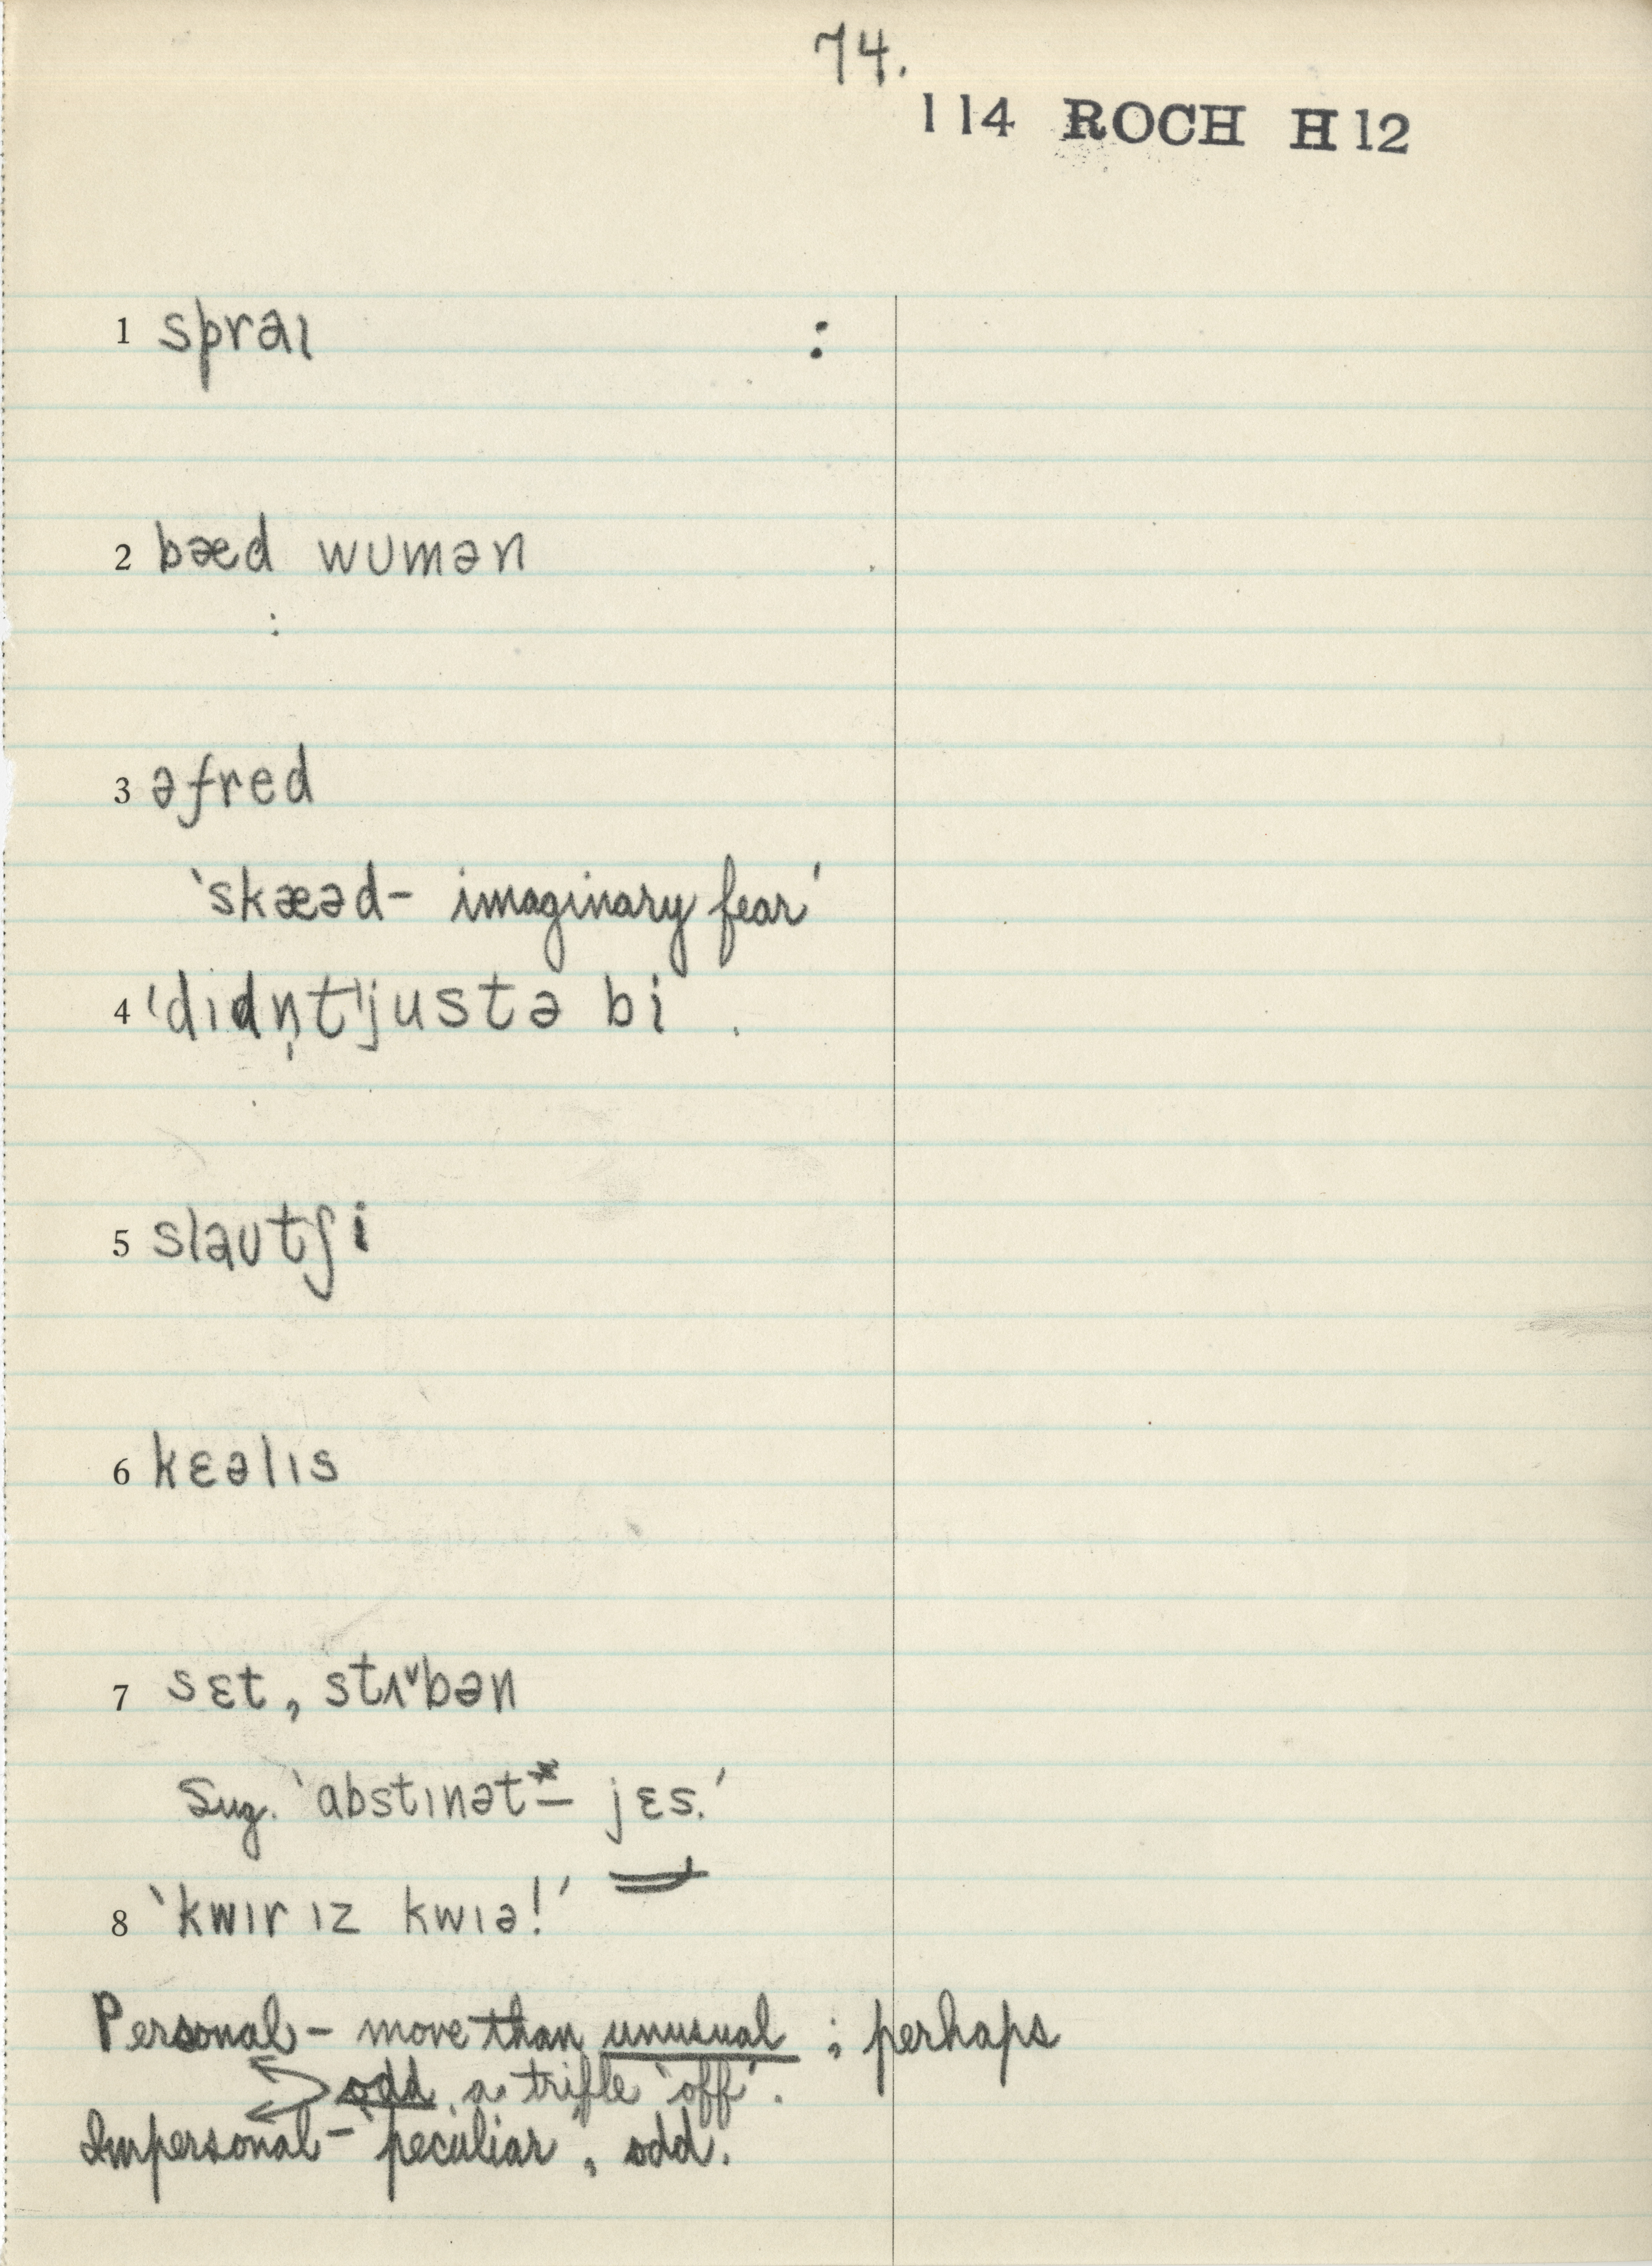 74.
114 ROCH H12
1 spraɪ :
2 bæd wumən
:
3 əfred
'skæəd – imaginary fear'
4 'dɪdn̩t' justə bi .
5 slautʃi
6 kɛəlɪs
7 sɛt, stʌ˅bən
Sug. 'abstɪnət* – jɛs.'
8 'kwɪr ɪz kwɪə!'
Personal – more than unusual ; perhaps
odd, a trifle 'off'.
Impersonal – peculiar, odd.